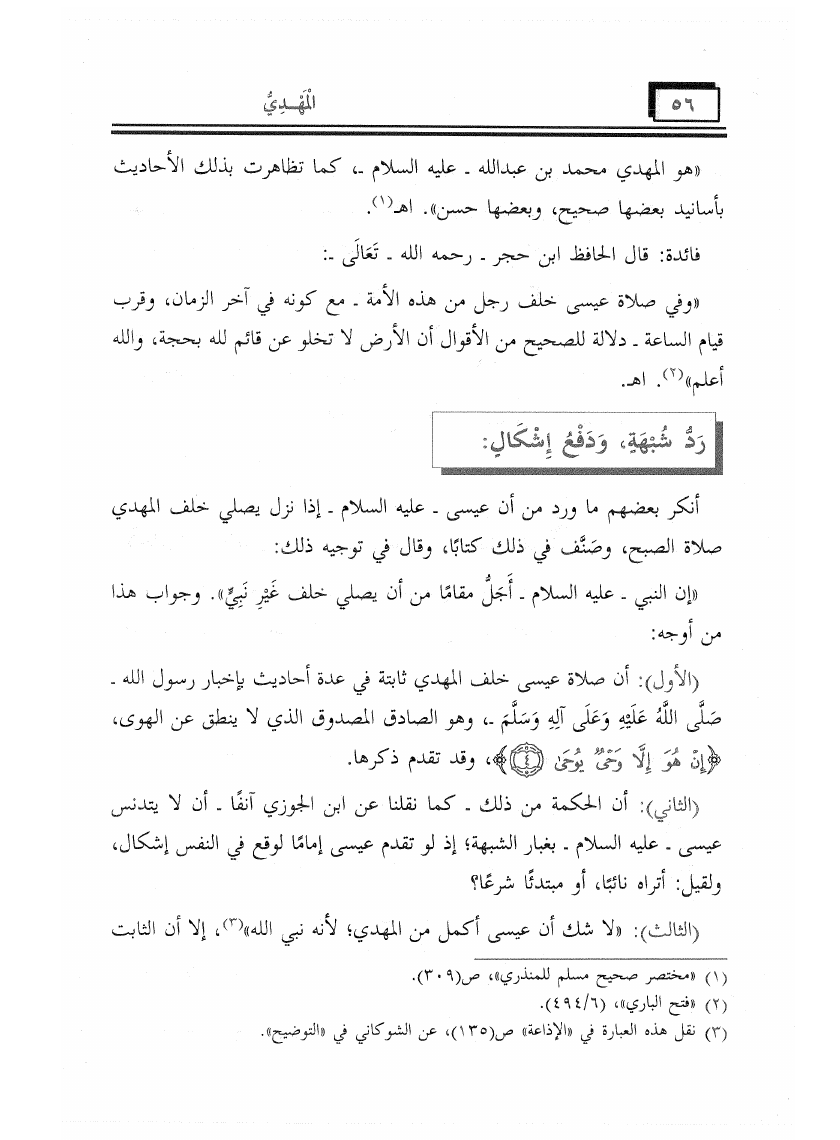 ٥٦
الْمَهْـدِيُّ
«هو المهدي محمد بن عبدالله ـ عليه السلام ـ، كما تظاهرت بذلك الأحاديث
بأسانيد بعضها صحيح، وبعضها حسن». اهـ(١).
فائدة: قال الحافظ ابن حجر ـ رحمه الله ـ تَعَالَى ـ:
«وفي صلاة عيسى خلف رجل من هذه الأمة ـ مع كونه في آخر الزمان، وقرب
قيام الساعة ـ دلالة للصحيح من الأقوال أن الأرض لا تخلو عن قائم لله بحجة، والله
أعلم»(٢). اهـ.
رَدُّ شُبْهَةٍ، وَدَفْعُ إِشْكَالٍ:
أنكر بعضهم ما ورد من أن عيسى ـ عليه السلام ـ إذا نزل يصلي خلف المهدي
صلاة الصبح، وصَنَّف في ذلك كتابًا، وقال في توجيه ذلك:
«إن النبي ـ عليه السلام ـ أَجَلُّ مقامًا من أن يصلي خلف غَيْرِ نَبِيٍّ». وجواب هذا
من أوجه:
(الأول): أن صلاة عيسى خلف المهدي ثابتة في عدة أحاديث بإخبار رسول الله ـ
صَلَّى اللَّهُ عَلَيْهِ وَعَلَى آلِهِ وَسَلَّمَ ـ، وهو الصادق المصدوق الذي لا ينطق عن الهوى،
﴿إِنْ هُوَ إِلَّا وَحْيٌ يُوحَىٰ ﴿٤﴾﴾، وقد تقدم ذكرها.
(الثاني): أن الحكمة من ذلك ـ كما نقلنا عن ابن الجوزي آنفًا ـ أن لا يتدنس
عيسى ـ عليه السلام ـ بغبار الشبهة؛ إذ لو تقدم عيسى إمامًا لوقع في النفس إشكال،
ولقيل: أتراه نائبًا، أو مبتدئًا شرعًا؟
(الثالث): «لا شك أن عيسى أكمل من المهدي؛ لأنه نبي الله»(٣)، إلا أن الثابت
(١) «مختصر صحيح مسلم للمنذري»، ص(٣٠٩).
(٢) «فتح الباري»، (٤٩٤/٦).
(٣) نقل هذه العبارة في «الإذاعة» ص(١٣٥)، عن الشوكاني في «التوضيح».